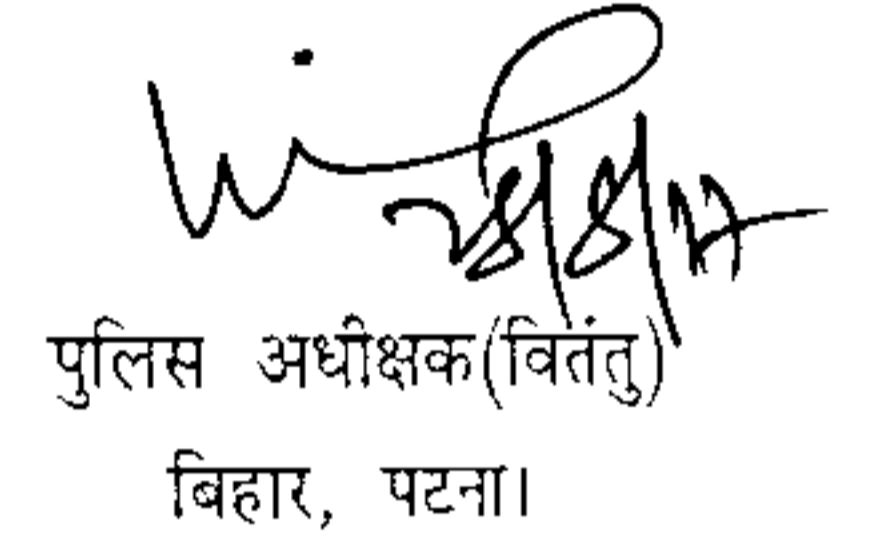 पुलिस अधीक्षक(वितंतु)
बिहार, पटना।